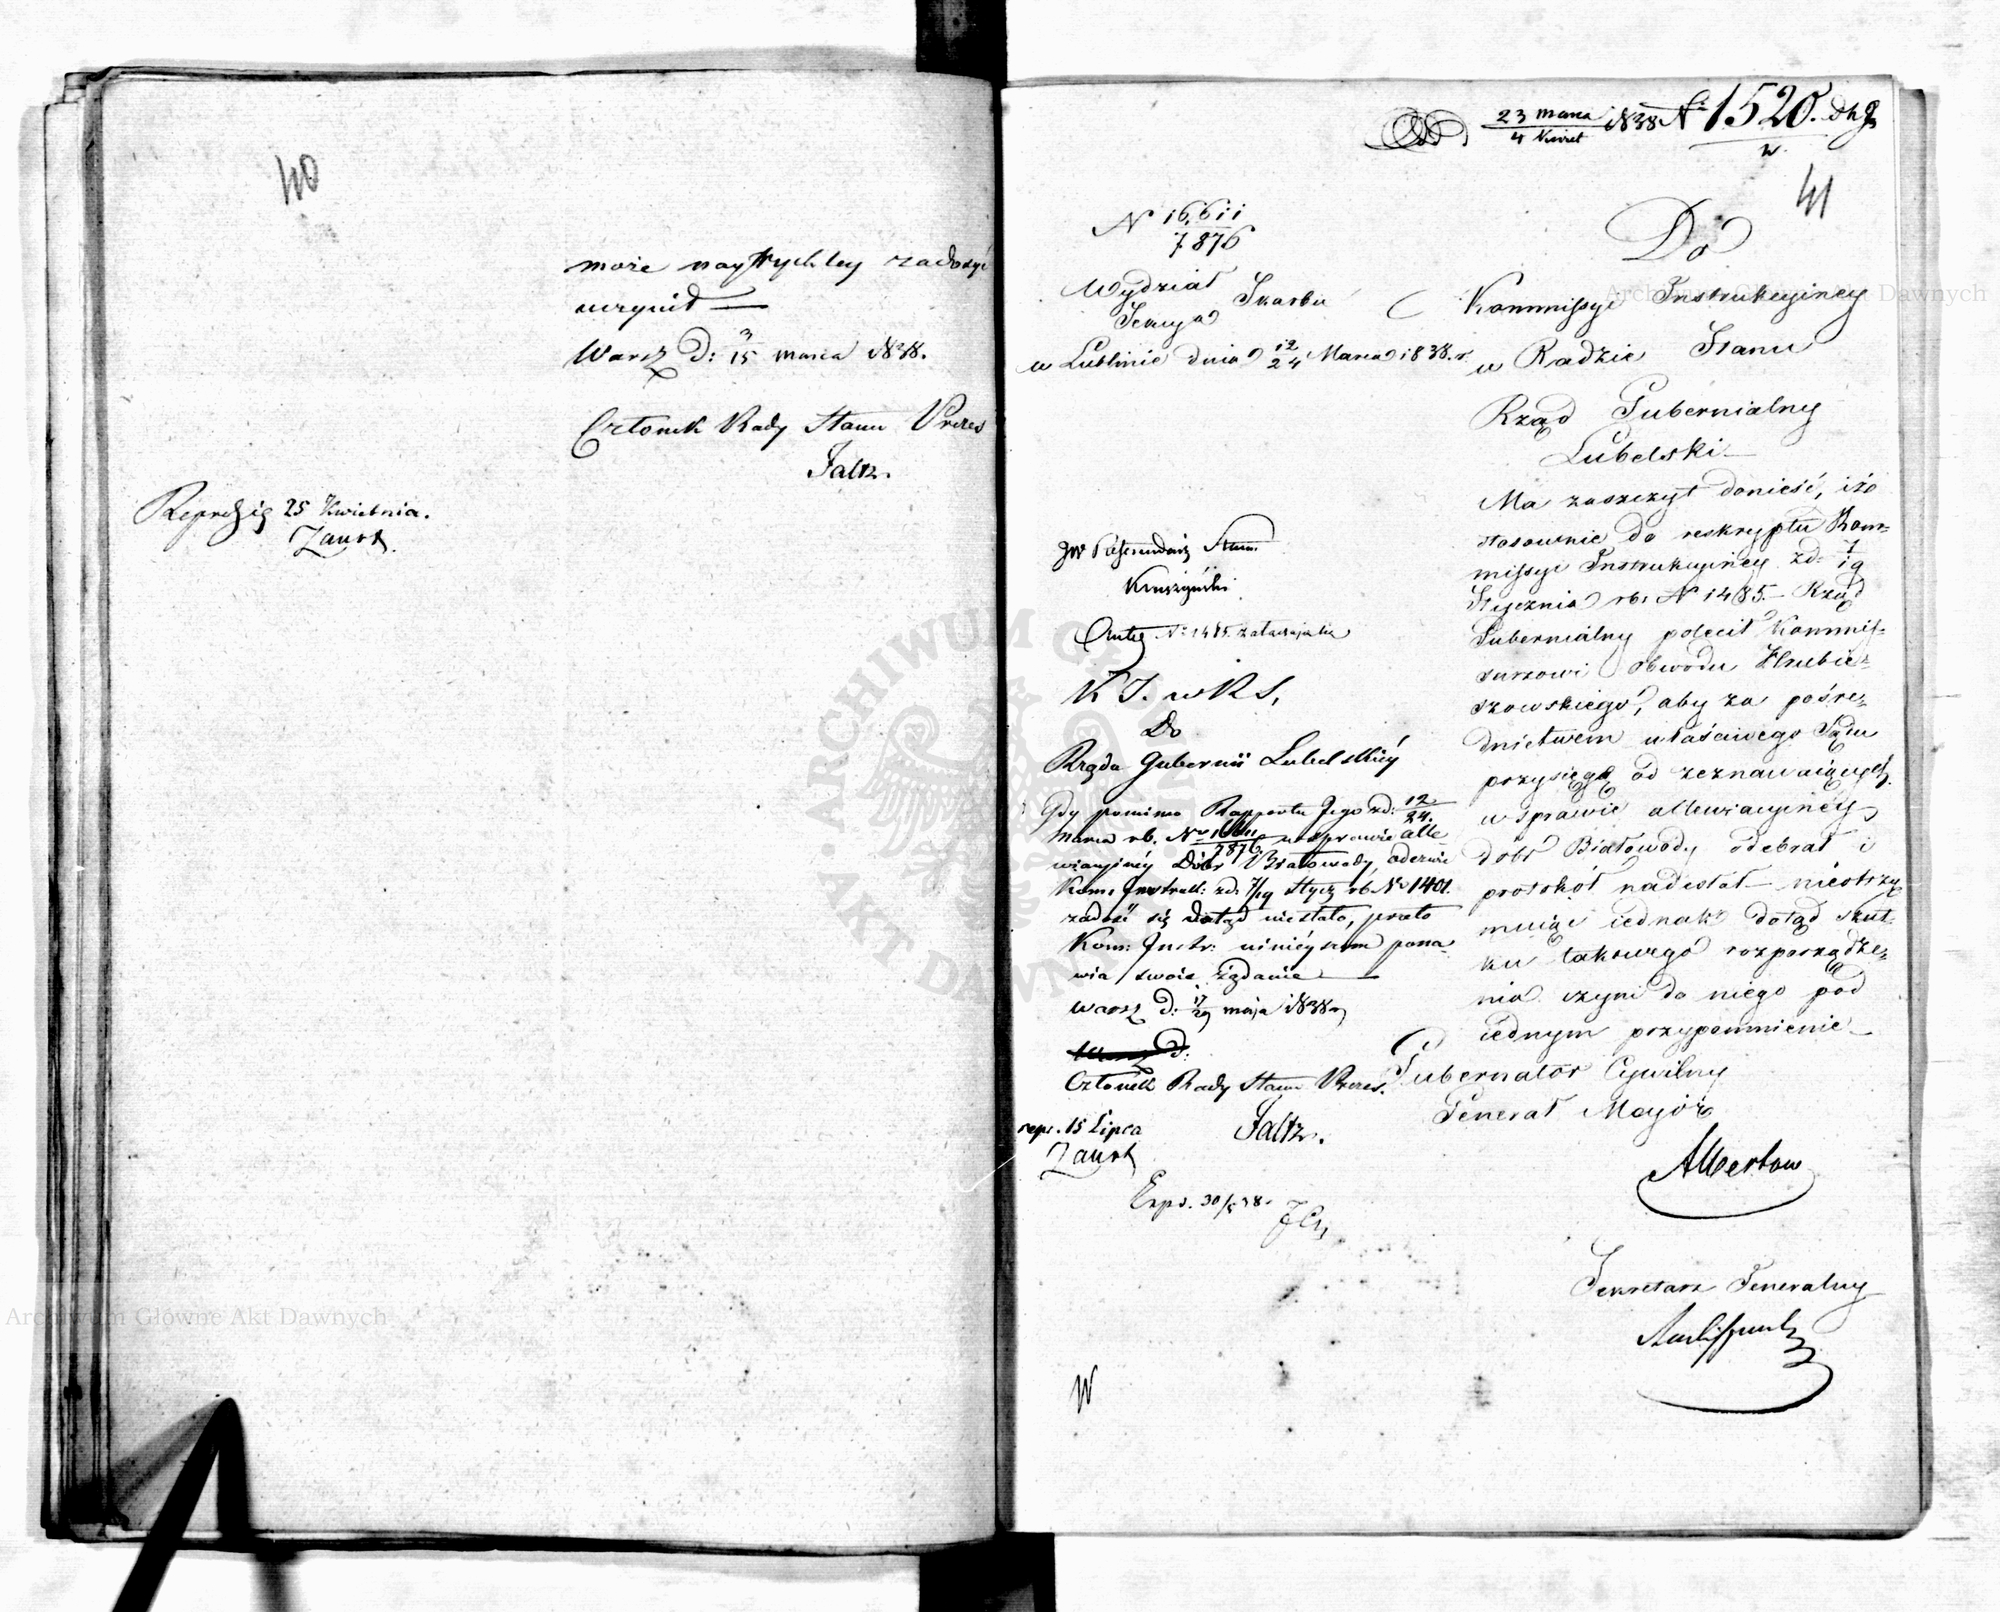 40
może nayrychley zadosyć
uczynił —
Warsz d: 3/15 marca 1838.
Członek Rady Stanu Prezes
Faltz.
25 Kwietnia.
Zaust
23 marca / 4 Kwiet 1838 N 1520.
41
N 16,611 / 7876
Wydział Skarbu
Sekcya
w Lublinie dnia 12/24 Marca 1838. r.
Do
Kommissyi Instrukcyiney
w Radzie Stanu
Rząd Gubernialny
Lubelski
Ma zaszczyt donieść, iż
stosownie do reskryptu Kom-
missyi Instrukcyiney z d: 7/19
Stycznia rb: N 1485.— Rząd
Gubernialny polecił Kommis-
sarzowi Obwodu Hrubie-
szowskiego, aby za pośre-
dnictwem właściwego Sądu
przysięgę od zeznawaiących
w sprawie allewiacyiney
dobr Białowody odebrał i
protokół nadesłał — nieotrzy-
muiąc iednak dotąd skut-
ku takowego rozporządze-
nia czyni do niego pod
iednym przypomnienie
Gubernator Cywilny
Generał Mayor
Albertow
Sekretarz Generalny
JW Referendarz Stanu
Kruszyński
N: 1485. załatwiaiąc
K I. w R S,
Do
Rządu Gubernii Lubelskiey
Gdy pomimo Rapportu Jego z d: 12/24.
Marca rb. No 16611/7876 w sprawie alle
wiacyiney Dóbr Białowody, odezwie
Kom: Instrukc: z d. 7/19 Stycz rb. No 1401.
zadość się dotąd niestało, przeto
Kom: Instr: ninieyszem pona-
wia swoie żądanie —
Warsz d: 17/29 maja 1838 r
Członek Rady Stanu Prezes.
Faltz.
repr. 15 Lipca
Zaust
Exp. 30/5 38.
W
Archiwum Główne Akt Dawnych
Archiwum Główne Akt Dawnych
ARCHIWUM GŁÓWNE AKT DAWNYCH